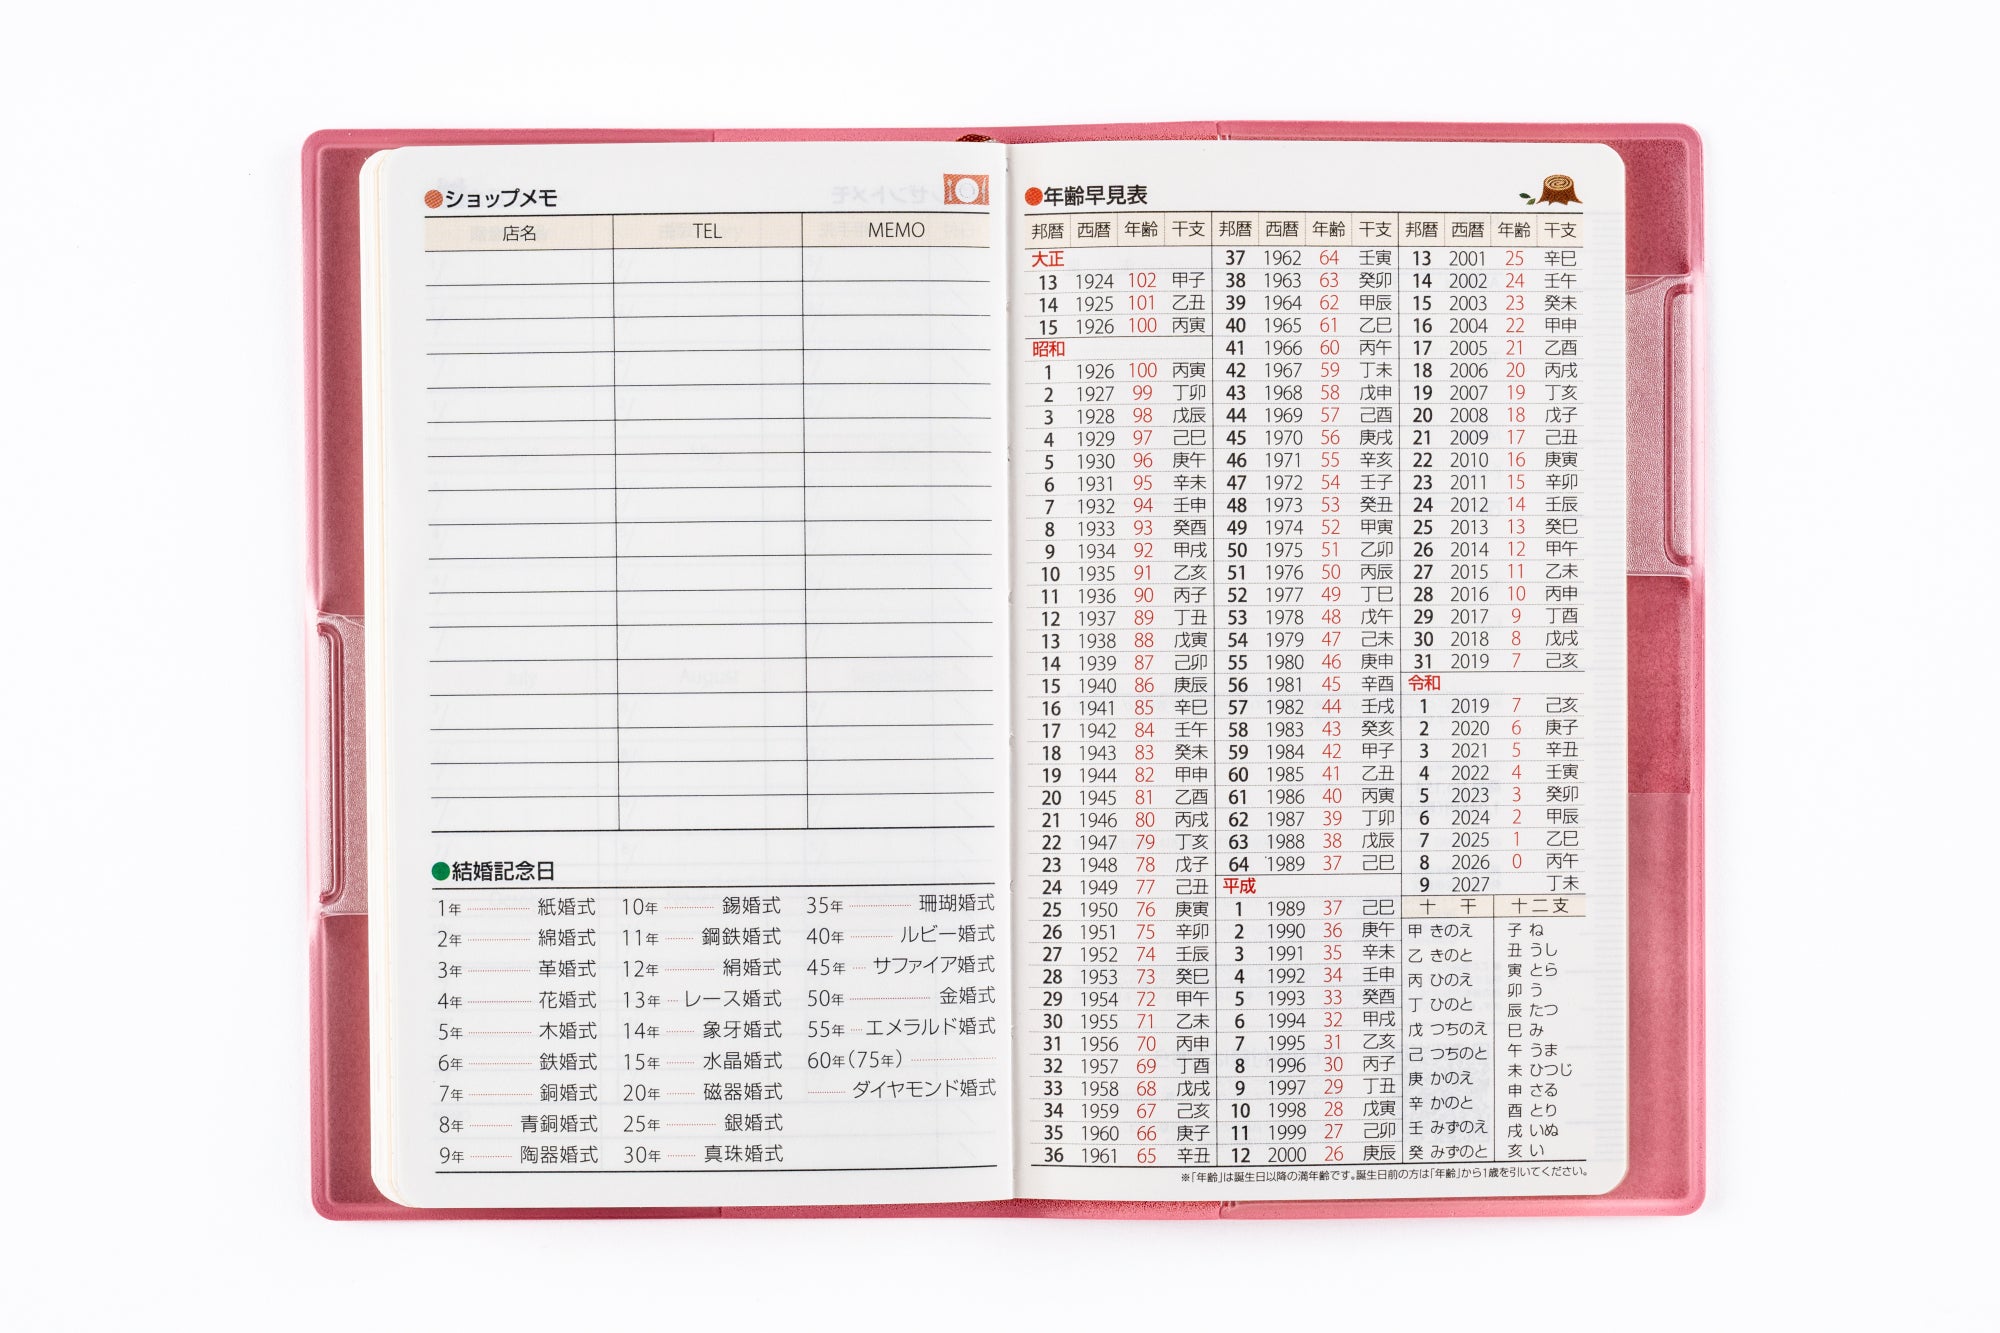 ●ショップメモ
店名 TEL MEMO
●結婚記念日
1年 紙婚式 10年 錫婚式 35年 珊瑚婚式
2年 綿婚式 11年 鋼鉄婚式 40年 ルビー婚式
3年 革婚式 12年 絹婚式 45年 サファイア婚式
4年 花婚式 13年 レース婚式 50年 金婚式
5年 木婚式 14年 象牙婚式 55年 エメラルド婚式
6年 鉄婚式 15年 水晶婚式 60年(75年)
7年 銅婚式 20年 磁器婚式 ダイヤモンド婚式
8年 青銅婚式 25年 銀婚式
9年 陶器婚式 30年 真珠婚式
●年齢早見表
邦暦 西暦 年齢 干支 邦暦 西暦 年齢 干支 邦暦 西暦 年齢 干支
大正
13 1924 102 甲子
14 1925 101 乙丑
15 1926 100 丙寅
昭和
1 1926 100 丙寅
2 1927 99 丁卯
3 1928 98 戊辰
4 1929 97 己巳
5 1930 96 庚午
6 1931 95 辛未
7 1932 94 壬申
8 1933 93 癸酉
9 1934 92 甲戌
10 1935 91 乙亥
11 1936 90 丙子
12 1937 89 丁丑
13 1938 88 戊寅
14 1939 87 己卯
15 1940 86 庚辰
16 1941 85 辛巳
17 1942 84 壬午
18 1943 83 癸未
19 1944 82 甲申
20 1945 81 乙酉
21 1946 80 丙戌
22 1947 79 丁亥
23 1948 78 戊子
24 1949 77 己丑
25 1950 76 庚寅
26 1951 75 辛卯
27 1952 74 壬辰
28 1953 73 癸巳
29 1954 72 甲午
30 1955 71 乙未
31 1956 70 丙申
32 1957 69 丁酉
33 1958 68 戊戌
34 1959 67 己亥
35 1960 66 庚子
36 1961 65 辛丑
37 1962 64 壬寅
38 1963 63 癸卯
39 1964 62 甲辰
40 1965 61 乙巳
41 1966 60 丙午
42 1967 59 丁未
43 1968 58 戊申
44 1969 57 己酉
45 1970 56 庚戌
46 1971 55 辛亥
47 1972 54 壬子
48 1973 53 癸丑
49 1974 52 甲寅
50 1975 51 乙卯
51 1976 50 丙辰
52 1977 49 丁巳
53 1978 48 戊午
54 1979 47 己未
55 1980 46 庚申
56 1981 45 辛酉
57 1982 44 壬戌
58 1983 43 癸亥
59 1984 42 甲子
60 1985 41 乙丑
61 1986 40 丙寅
62 1987 39 丁卯
63 1988 38 戊辰
64 1989 37 己巳
平成
1 1989 37 己巳
2 1990 36 庚午
3 1991 35 辛未
4 1992 34 壬申
5 1993 33 癸酉
6 1994 32 甲戌
7 1995 31 乙亥
8 1996 30 丙子
9 1997 29 丁丑
10 1998 28 戊寅
11 1999 27 己卯
12 2000 26 庚辰
13 2001 25 辛巳
14 2002 24 壬午
15 2003 23 癸未
16 2004 22 甲申
17 2005 21 乙酉
18 2006 20 丙戌
19 2007 19 丁亥
20 2008 18 戊子
21 2009 17 己丑
22 2010 16 庚寅
23 2011 15 辛卯
24 2012 14 壬辰
25 2013 13 癸巳
26 2014 12 甲午
27 2015 11 乙未
28 2016 10 丙申
29 2017 9 丁酉
30 2018 8 戊戌
31 2019 7 己亥
令和
1 2019 7 己亥
2 2020 6 庚子
3 2021 5 辛丑
4 2022 4 壬寅
5 2023 3 癸卯
6 2024 2 甲辰
7 2025 1 乙巳
8 2026 0 丙午
9 2027 丁未
十干
甲 きのえ
乙 きのと
丙 ひのえ
丁 ひのと
戊 つちのえ
己 つちのと
庚 かのえ
辛 かのと
壬 みずのえ
癸 みずのと
十二支
子 ね
丑 うし
寅 とら
卯 う
辰 たつ
巳 み
午 うま
未 ひつじ
申 さる
酉 とり
戌 いぬ
亥 い
※「年齢」は誕生日以降の満年齢です。誕生日前の方は「年齢」から1歳を引いてください。